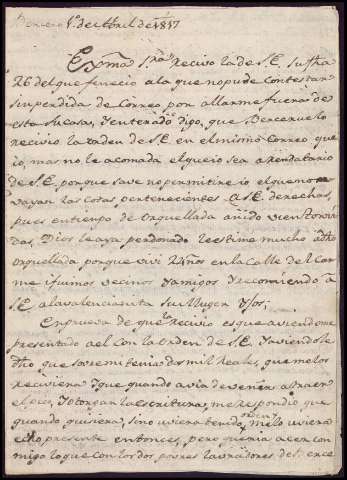 Berzero 1º de Abril de 1817
Exma Sra Recivo la de S.E. su fha
26 del que fenecio a la que no pude contestar
sin perdida de Correo por allarme fuera de
esta su casa, y enterado digo, que Berceruelo
recivio la orden de S.E. en el mismo Correo que
io, mas no le acomoda el que io sea arrendatario
de S.E. porque save no permitire io el que no
vayan las cosas pertenecientes a S.E. derechas,
pues en tiempo de Orquellada an ido vien torci
das, Dios le aya perdonado le estime mucho a dho
Orquellada porque vivi 2 años en la Calle del Car
me i fuimos vecinos y amigos y recomiendo a
S.E. a la valencianita su Muger y sos;
En prueva de que la recivio es que aviendome
presentado a el con la orden de S.E. y aviendole
dho que savia mi tenia dos mil Reales, que me los
reciviera y que quando avia de venir a traer
el pico, y otorgar la escritura, me respondio que
quando quisiera, sino uviera tenido orden y me lo uviera
echo presente entonces, pero queria acer con
migo lo que con los dos pobres labradores de Berce